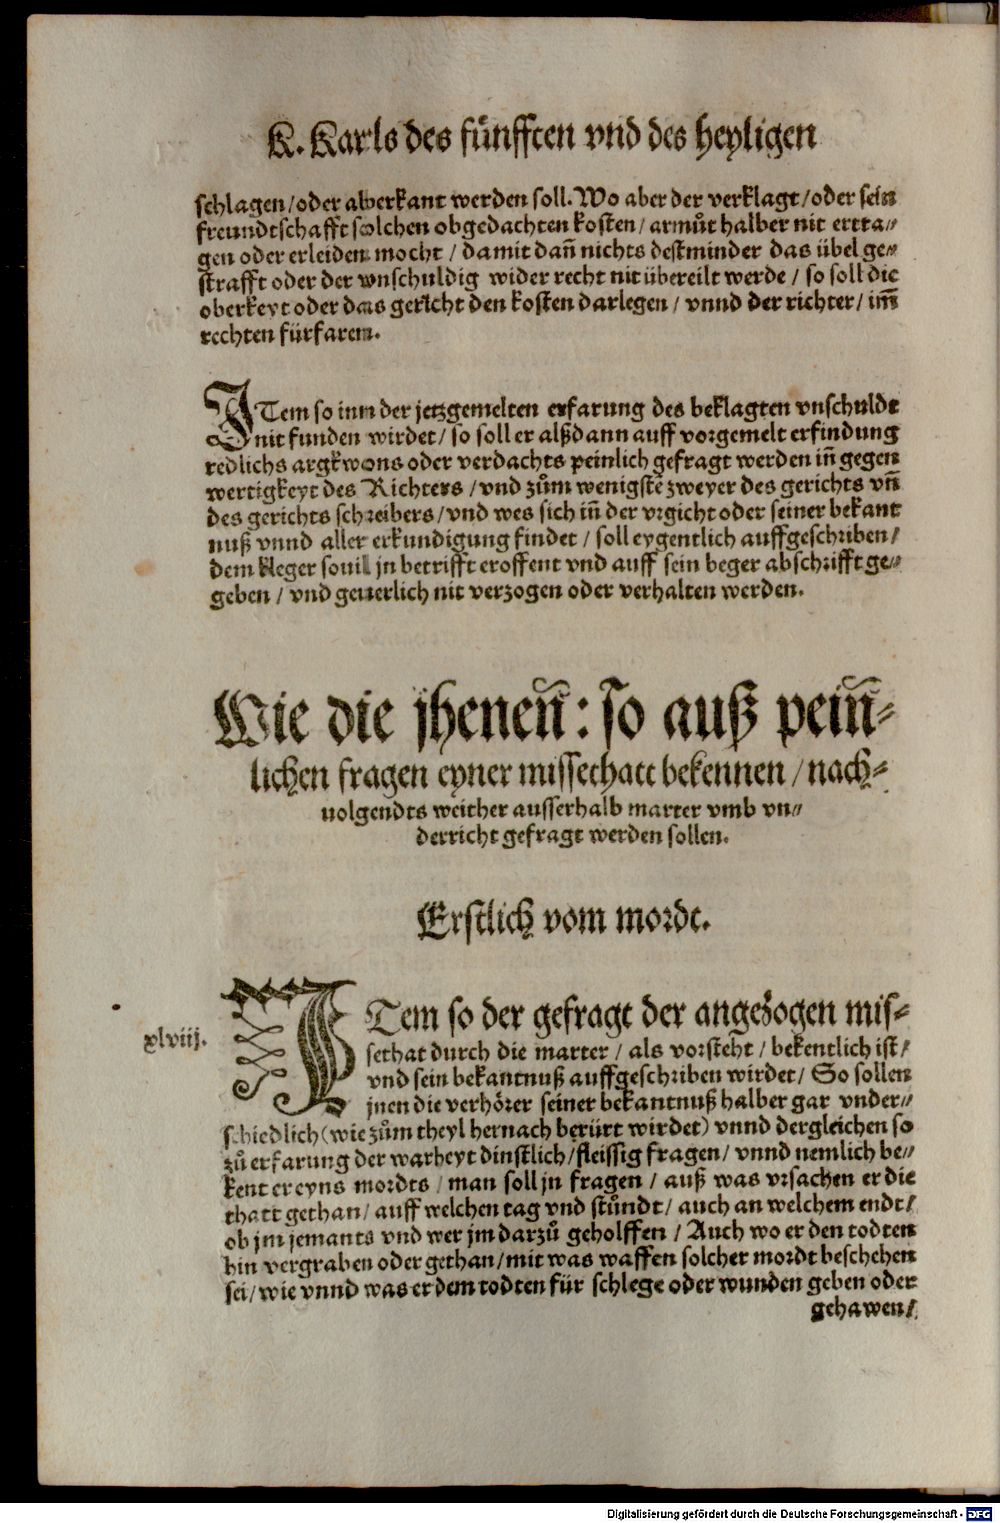 K. Karls des fünfften vnd des heyligen
schlagen/oder aberkant werden soll. Wo aber der verklagt/oder sein
freundtschafft solchen obgedachten kosten/armůt halber nit ertra⸗
gen oder erleiden mocht / damit dañ nichts destminder das übel ge⸗
strafft oder der vnschuldig wider recht nit übereilt werde / so soll die
oberkeyt oder das gericht den kosten darlegen / vnnd der richter / im̃
rechten fürfaren.
ITem so inn der jetzgemelten erfarung des beklagten vnschuldt
nit funden wirdet / so soll er alßdann auff vorgemelt erfindung
redlichs argkwons oder verdachts peinlich gefragt werden iñ gegen
wertigkeyt des Richters / vnd zům wenigstē zweyer des gerichts vñ
des gerichts schreibers/vnd wes sich iñ der vrgicht oder seiner bekant
nuß vnnd aller erkundigung findet / soll eygentlich auffgeschriben/
dem kleger souil jn betrifft eroffent vnd auff sein beger abschrifft ge⸗
geben / vnd geuerlich nit verzogen oder verhalten werden.
Wie die jheneñ: so auß peiñ⸗
lichen fragen eyner missethatt bekennen / nach⸗
uolgendts weither ausserhalb marter vmb vn⸗
derricht gefragt werden sollen.
Erstlich vom mordt.
xlviij.
ITem so der gefragt der angezogen mis⸗
sethat durch die marter / als vorsteht / bekentlich ist/
vnd sein bekantnuß auffgeschriben wirdet / So sollen
jnen die verhörer seiner bekantnuß halber gar vnder⸗
schiedlich (wie zům theyl hernach berürt wirdet) vnnd dergleichen so
zů erfarung der warheyt dinstlich/fleissig fragen/ vnnd nemlich be⸗
kent er eyns mordts / man soll jn fragen / auß was vrsachen er die
thatt gethan/ auff welchen tag vnd stůndt / auch an welchem endt/
ob jm jemants vnd wer jm darzů geholffen / Auch wo er den todten
hin vergraben oder gethan/mit was waffen solcher mordt beschehen
sei/wie vnnd was er dem todten für schlege oder wunden geben oder
gehawen/
Digitalisierung gefördert durch die Deutsche Forschungsgemeinschaft - DFG